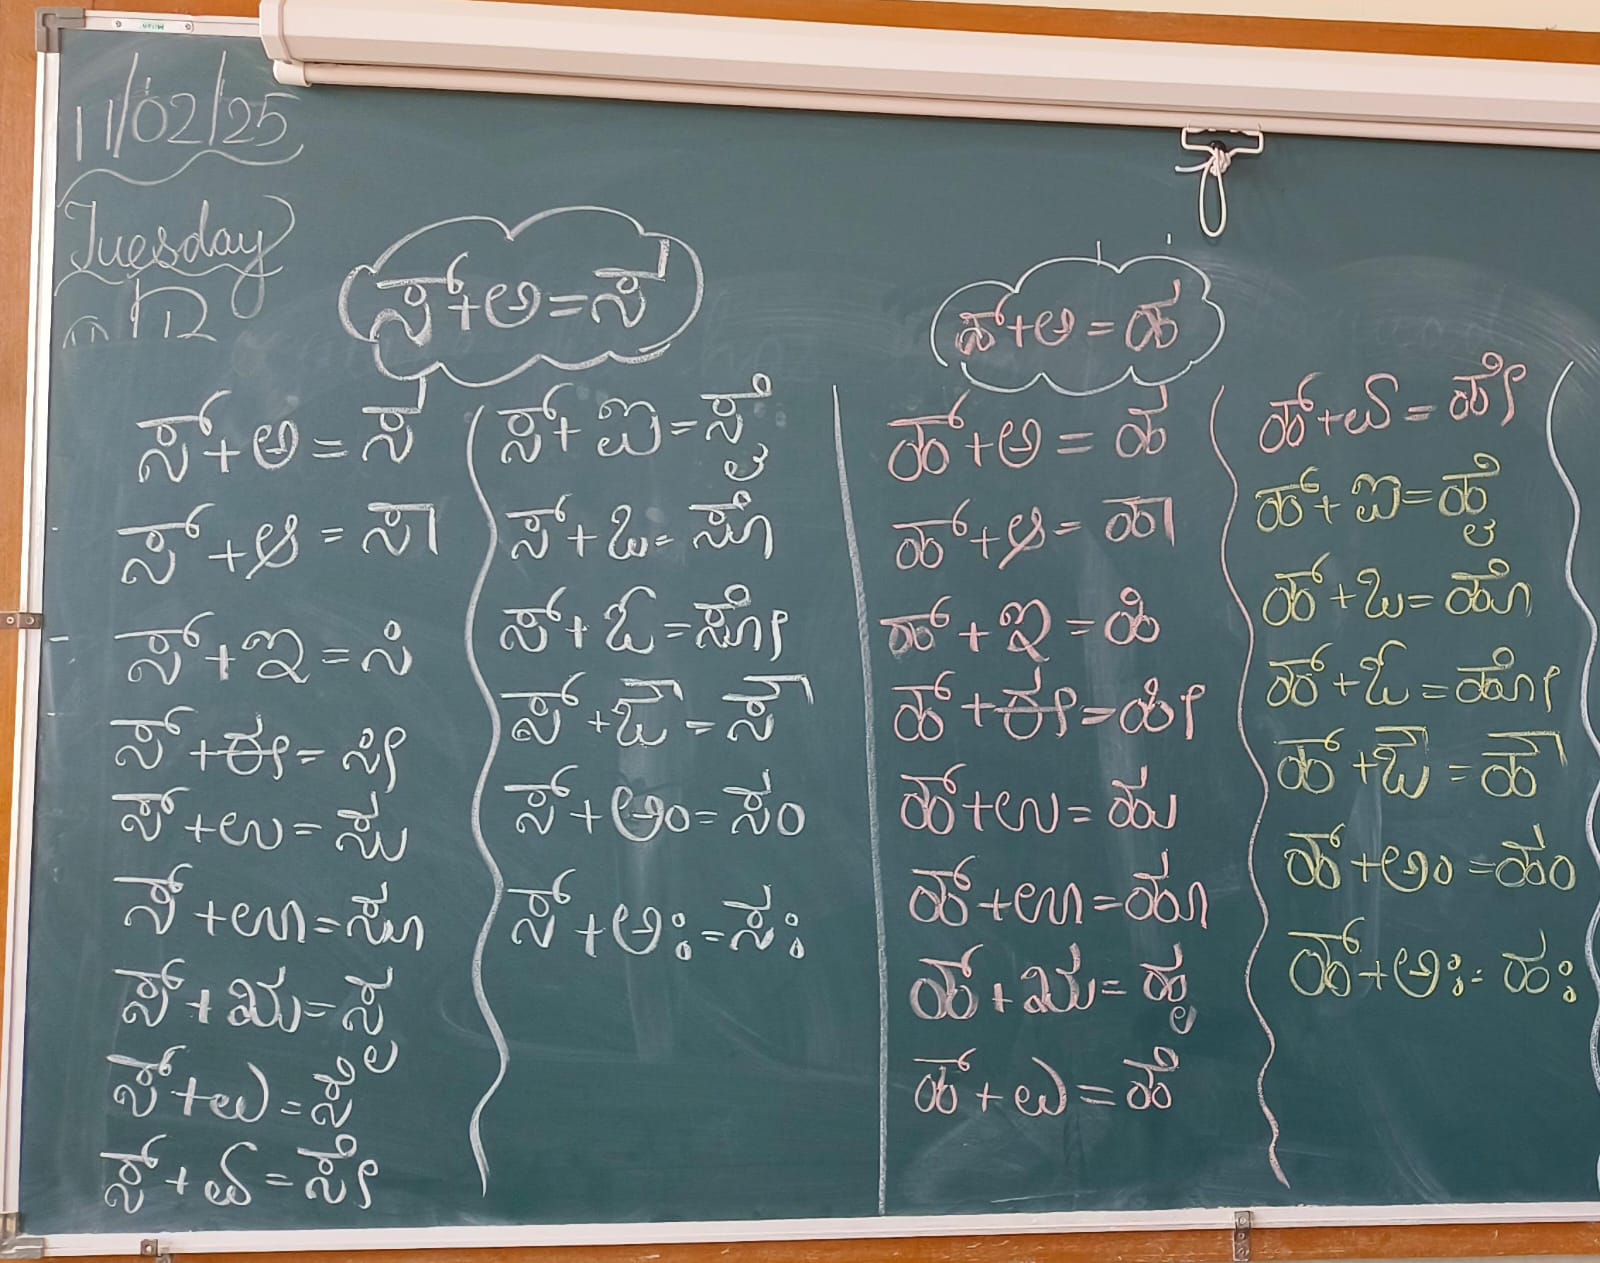 11/02/25
Tuesday
ಸ್+ಅ=ಸ
ಸ್+ಅ=ಸ
ಸ್+ಆ=ಸಾ
ಸ್+ಇ=ಸಿ
ಸ್+ಈ=ಸೀ
ಸ್+ಉ=ಸು
ಸ್+ಊ=ಸೂ
ಸ್+ಋ=ಸೃ
ಸ್+ಎ=ಸೆ
ಸ್+ಏ=ಸೇ
ಸ್+ಐ=ಸೈ
ಸ್+ಒ=ಸೊ
ಸ್+ಓ=ಸೋ
ಸ್+ಔ=ಸೌ
ಸ್+ಅಂ=ಸಂ
ಸ್+ಅಃ=ಸಃ
ಹ್+ಅ=ಹ
ಹ್+ಅ=ಹ
ಹ್+ಆ=ಹಾ
ಹ್+ಇ=ಹಿ
ಹ್+ಈ=ಹೀ
ಹ್+ಉ=ಹು
ಹ್+ಊ=ಹೂ
ಹ್+ಋ=ಹೃ
ಹ್+ಎ=ಹೆ
ಹ್+ಏ=ಹೇ
ಹ್+ಐ=ಹೈ
ಹ್+ಒ=ಹೊ
ಹ್+ಓ=ಹೋ
ಹ್+ಔ=ಹೌ
ಹ್+ಅಂ=ಹಂ
ಹ್+ಅಃ=ಹಃ